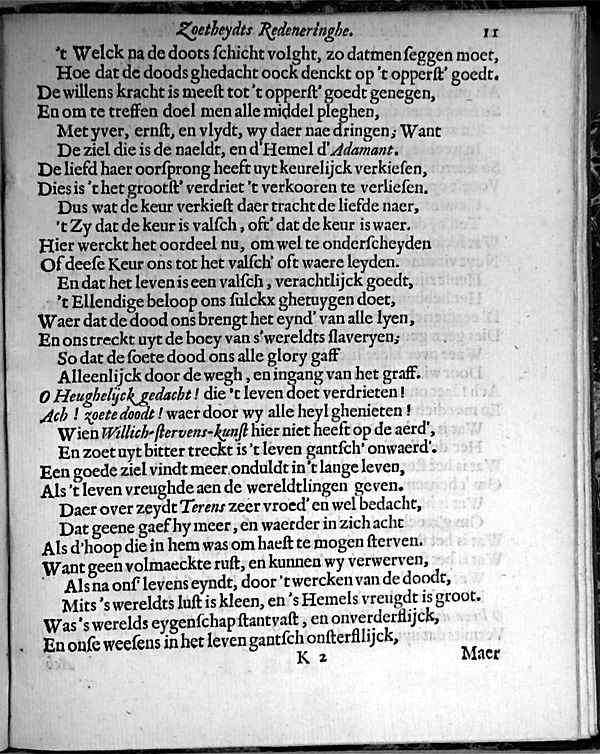 Zoetheydts Redeneringhe. 11
't Welck na de doots ſchicht volght, zo datmen ſeggen moet,
Hoe dat de doods ghedacht oock denckt op 't opperſt' goedt.
De willens kracht is meeſt tot 't opperſt' goedt genegen,
En om te treffen doel men alle middel pleghen,
Met yver, ernſt, en vlydt, wy daer nae dringen; Want
De ziel die is de naeldt, en d'Hemel d'Adamant.
De liefd haer oorſprong heeft uyt keurelijck verkieſen,
Dies is 't het grootſt' verdriet 't verkooren te verlieſen.
Dus wat de keur verkieſt daer tracht de liefde naer,
't Zy dat de keur is valſch, oft' dat de keur is waer.
Hier werckt het oordeel nu, om wel te onderſcheyden
Of deeſe Keur ons tot het valſch' oft waere leyden.
En dat het leven is een valſch, verachtlijck goedt,
't Ellendige beloop ons ſulckx ghetuygen doet,
Waer dat de dood ons brengt het eynd' van alle lyen,
En ons treckt uyt de boey van s'wereldts ſlaveryen;
So dat de ſoete dood ons alle glory gaff
Alleenlijck door de wegh, en ingang van het graff.
O Heughelijck gedacht! die 't leven doet verdrieten!
Ach! zoete doodt! waer door wy alle heyl ghenieten!
Wien Willich-ſtervens-kunſt hier niet heeft op de aerd',
En zoet uyt bitter treckt is 't leven gantſch' onwaerd'.
Een goede ziel vindt meer onduldt in 't lange leven,
Als 't leven vreughde aen de wereldtlingen geven.
Daer over zeydt Terens zeer vroed' en wel bedacht,
Dat geene gaef hy meer, en waerder in zich acht
Als d'hoop die in hem was om haeſt te mogen ſterven.
Want geen volmaeckte ruſt, en kunnen wy verwerven,
Als na onſ' levens eyndt, door 't wercken van de doodt,
Mits 's wereldts luſt is kleen, en 's Hemels vreugdt is groot.
Was 's werelds eygenſchap ſtantvaſt, en onverderflijck,
En onſe weeſens in het leven gantſch onſterflijck,
K 2 Maer